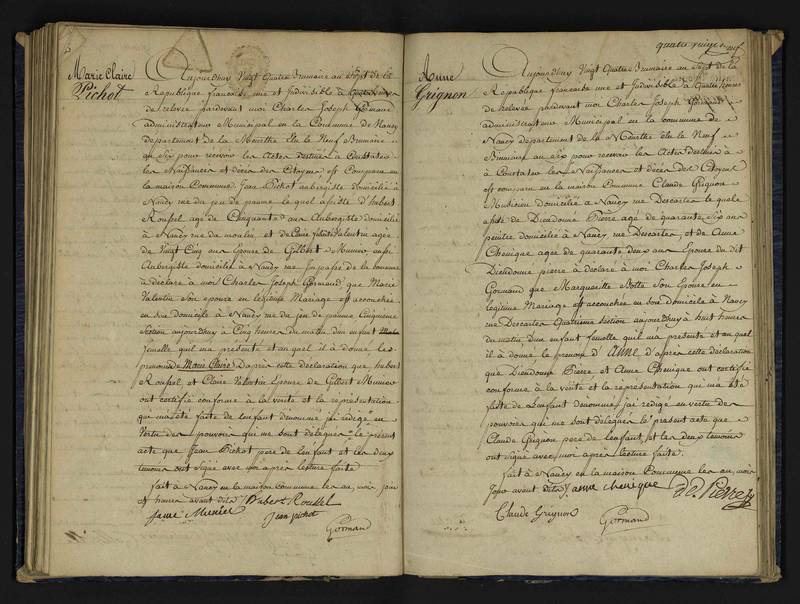 Marie Claire
Pichot
Aujourdhuy Vingt Quatre Brumaire an Sept de la
Republique francaise une et Indivisible à
de relevée pardevant moi Charles Joseph Gormand
administrateur Municipal en la Commune de Nancy
departement de la Meurthe Elu le Neuf Brumaire
an Six pour recevoir les Actes destinés à Constater
les Naissances et décès des Citoyens est Comparu en
la maison Commune Jean Pichot aubergiste domicilié à
Nancy rue du jeu de paume lequel assisté d'hubert
Roussel agé de Cinquante ans Aubergiste domicilié
à Nancy rue du moulin et de Valentin agée
de Vingt Cinq ans Epouse de Gilbert Munier aussi
Aubergiste domicilié à Nancy rue Impasse de la
a declaré a moi Charles Joseph Gormand que Marie
Valentin son epouse en legitime Mariage est accouchée
en son domicile à Nancy rue du jeu de paume Cinquieme
Section aujourdhuy à Cinq heures du matin d'un enfant
femelle quil ma presenté et auquel il à donné les
prenoms de Marie Claire d'après cette declaration que hubert
Roussel et Claire Valentin Epouse de Gilbert Munier
ont certifié conforme à la verité et la représentation
qui m'a été faite de l'enfant dénommé jai redigé en
Vertu des pouvoirs qui me sont délégués le present
acte que Jean Pichot pere de l'enfant et les deux
temoins ont signé avec moi après lecture faite
fait à Nancy en la maison commune les an, mois jour
et heures avant dits Hubert Roussel
Munier Jean pichot
Gormand
quatre vingt neuf
Anne
Grignon
Aujourdhuy Vingt Quatre Brumaire an Sept de la
Republique francaise une et Indivisible à Quatre heures
de relevée pardevant moi Charles Joseph Gormand
administrateur Municipal en la commune de
Nancy departement de la Meurthe Elu le Neuf
Brumaire an Six pour recevoir les Actes destinés à
à Constater les Naissances et décès des Citoyens
est comparu en la maison Commune Claude Grignon
Musicien domicilié à Nancy rue Descartes lequel
assisté de Dieudonné Pierre agé de quarante six ans
peintre domicilié à Nancy rue Descartes, et de Anne
Chenique agée de quarante deux ans Epouse du dit
Dieudonné pierre à declaré à moi Charles Joseph
Gormand que Marguerite Botte son Epouse en
legitime Mariage est accouchée en son domicile à Nancy
rue Descartes Quatrieme section aujourdhuy à huit heures
du matin, d'un enfant femelle quil ma presenté et auquel
il à donné le prenom d'ANNE d'après cette declaration
que Dieudonné Pierre et Anne Chenique ont certifié
conforme à la verité et la représentation qui m'a été
faite de l'enfant dénommé, j'ai rédigé en vertu des
pouvoirs qui me sont délégués le present acte que
Claude Grignon pere de l'enfant, et les deux temoins
ont signé avec moi apres lecture faite.
fait à Nancy en la maison Commune les an, mois
Jour avant dits anne chenique D. Pierre
Claude Grignon
Gormand